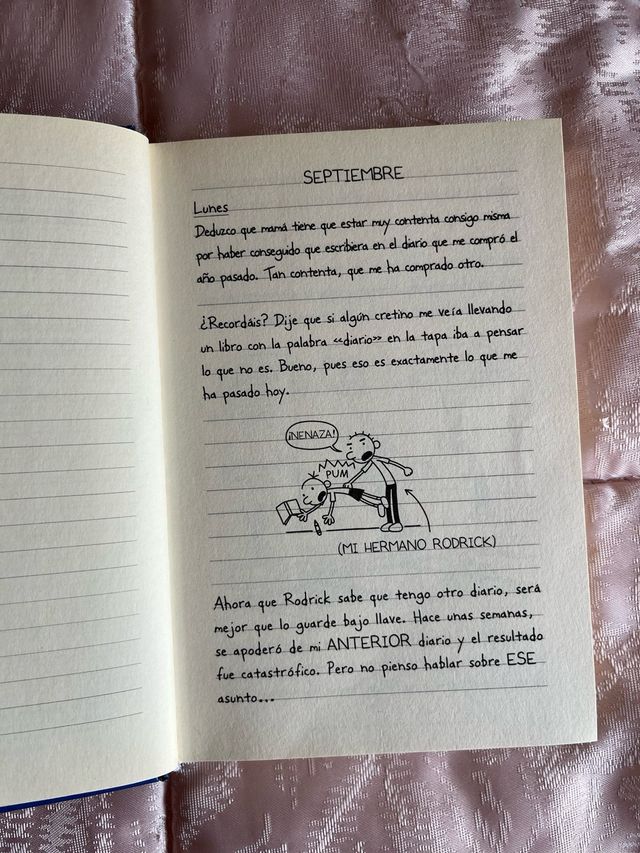 SEPTIEMBRE
Lunes
Deduzco que mamá tiene que estar muy contenta consigo misma
por haber conseguido que escribiera en el diario que me compró el
año pasado. Tan contenta, que me ha comprado otro.
¿Recordáis? Dije que si algún cretino me veía llevando
un libro con la palabra «diario» en la tapa iba a pensar
lo que no es. Bueno, pues eso es exactamente lo que me
ha pasado hoy.
¡NENAZA!
PUM
(MI HERMANO RODRICK)
Ahora que Rodrick sabe que tengo otro diario, será
mejor que lo guarde bajo llave. Hace unas semanas,
se apoderó de mi ANTERIOR diario y el resultado
fue catastrófico. Pero no pienso hablar sobre ESE
asunto...